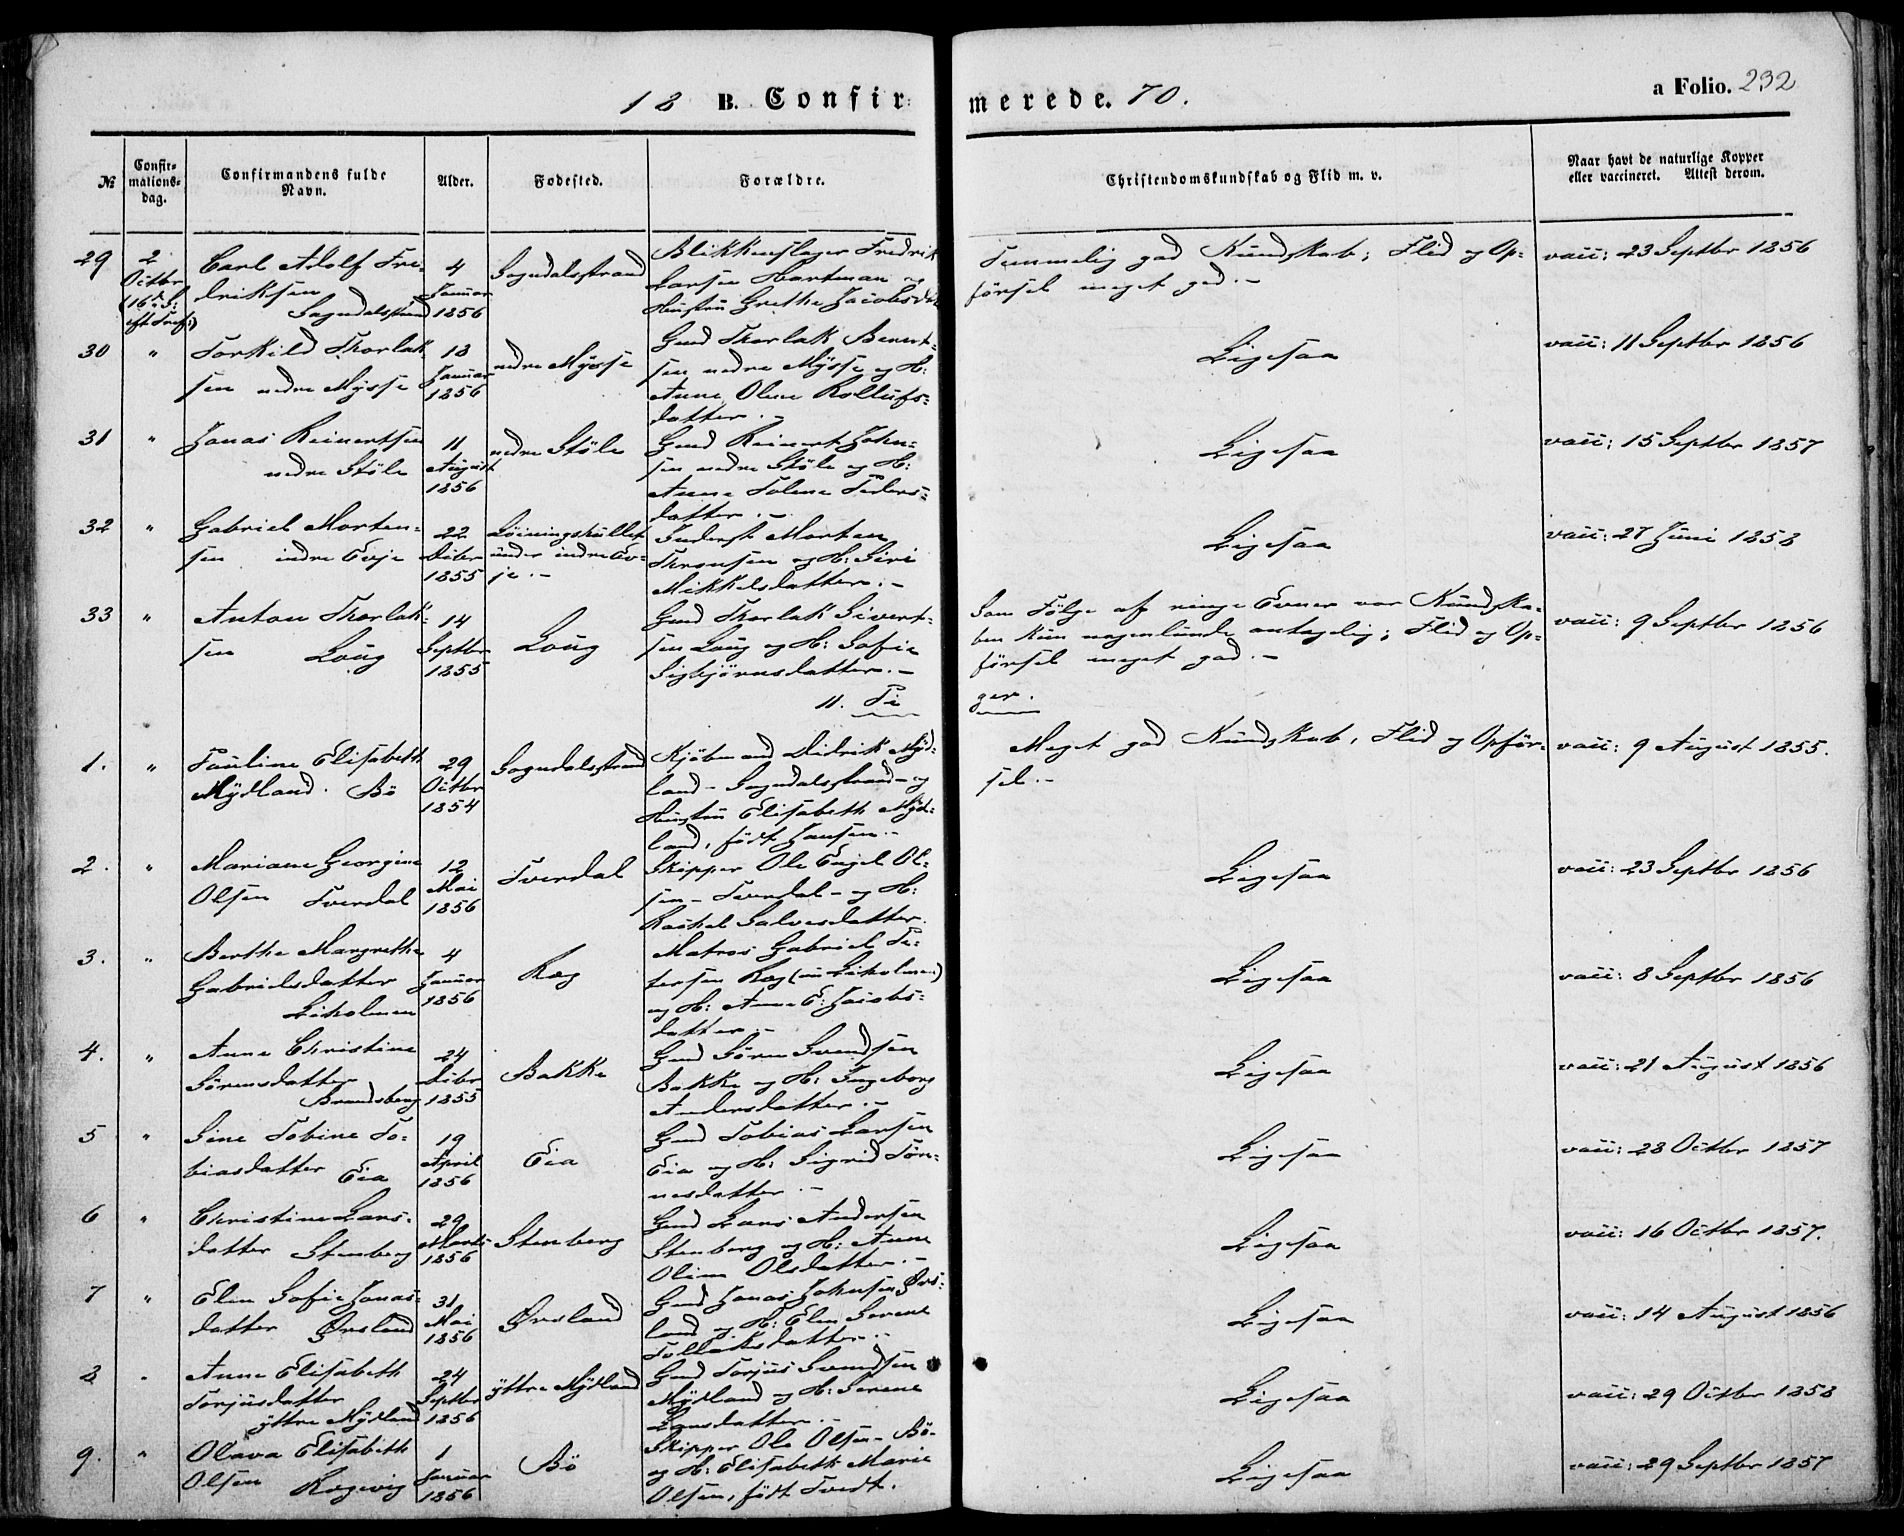 18 B. Confirmerede. 70.
a Folio. 232
№
Confirmationsdag.
Confirmandens fulde Navn.
Alder.
Fødested.
Forældre.
Christendomskundskab og Flid m. v.
Naar havt de naturlige Kopper eller vaccineret. Attest derom.
29 2 Octbr (16de S: eft Tref:) Carl Adolf Fre-
driksen Sogndalsstrand
4 Januar 1856
Sogndalsstrand
Blikkenslager Fredrik
Larsen Hartman og
Hustru Grethe Jacobsdtr
Temmelig god Kundskab; Flid og Op-
førsel meget god.-
vacc: 23 Septbr 1856
30 " Torkild Thorlak-
sen nedre Mysse
18 Januar 1856
nedre Mysse
Gmd Thorlak Berent-
sen nedre Mysse og H:
Anne Oline Rollufs-
datter.-
Ligesaa
vacc: 11 Septbr 1856
31 " Jonas Reinertsen
nedre Støle
11 August 1856
nedre Støle
Gmd Reinert John-
sen nedre Støle og H:
Anne Tolene Peders-
datter.-
Ligesaa
vacc: 15 Septbr 1857
32 " Gabriel Morten-
sen indre Evje
22 Decbr 1855
under indre Ev-
je.-
Inderst Morten
Thronsen og H: Siri
Mikkelsdatter.-
Ligesaa
vacc: 27 Juni 1858
33 " Anton Thorlak-
sen Loug
14 Septbr 1855
Loug
Gmd Thorlak Sivert-
sen Loug og H: Sofie
Sigbjørnsdatter.-
Som Følge af ringe Evner var Kundska-
ben kun nogenlunde antagelig; Flid og Op-
førsel meget god.-
vacc: 9 Septbr 1856
11. Pi
ger.
1. " Pauline Elisabeth
Mydland. Bø
29 Octbr 1854
Sogndalsstrand
Kjøbmand Didrik Myd-
land - Sogndalsstrand - og
Hustru Elisabeth Myd-
land, født Jansen.-
Meget god Kundskab, Flid og Opfør-
sel.-
vacc: 9 August 1855.
2. " Mariane Georgine
Olsen Tverdal
12 Mai 1856
Tverdal
Skipper Ole Engel Ol-
sen - Tverdal - og H:
Rachel Salvesdatter.
Ligesaa
vacc: 23 Septbr 1856
3. " Berthe Margrethe
Gabrielsdatter
Liholmen
4 Januar 1856
Ræg
Matros Gabriel Pe-
tersen Ræg (nu Liholmen)
og H: Anne E: Jacobs-
datter.-
Ligesaa
vacc: 8 Septbr 1856
4. " Anne Christine
Sørensdatter
Brandsberg
24 Decbr 1855
Bakke
Gmd Søren Svendsen
Bakke og H: Ingeborg
Andersdatter.-
Ligesaa
vacc: 21 August 1856
5 " Sine Tobine To-
biasdatter Eia
19 April 1856
Eia
Gmd Tobias Larsen
Eia og H: Sigrid Tøn-
nesdatter.-
Ligesaa
vacc: 28 Octbr 1857
6 " Christine Lars-
datter Stenberg
29 Marts 1856
Stenberg
Gmd Lars Andersen
Stenberg og H: Anne
Oline Olsdatter.-
Ligesaa
vacc: 16 Octbr 1857.
7 " Elen Sofie Jonas-
datter Ørsland
31 Mai 1856
Ørsland
Gmd Jonas Johnsen Ørs-
land og H: Elen Serene
Tollaksdatter.-
Ligesaa
vacc: 14 August 1856
8 " Anne Elisabeth
Torjusdatter
yttre Mydland
24 Septbr 1856
yttre Mydland
Gmd Torjus Svendsen
Mydland og H: Serene
Larsdatter.-
Ligesaa
vacc: 29 Octbr 1858
9. " Olava Elisabeth
Olsen Rægevig
1 Januar 1856
Bø
Skipper Ole Olsen - Bø -
og H: Elisabeth Marie
Olsen, født Tvedt.
Ligesaa
vacc: 29 Septbr 1857